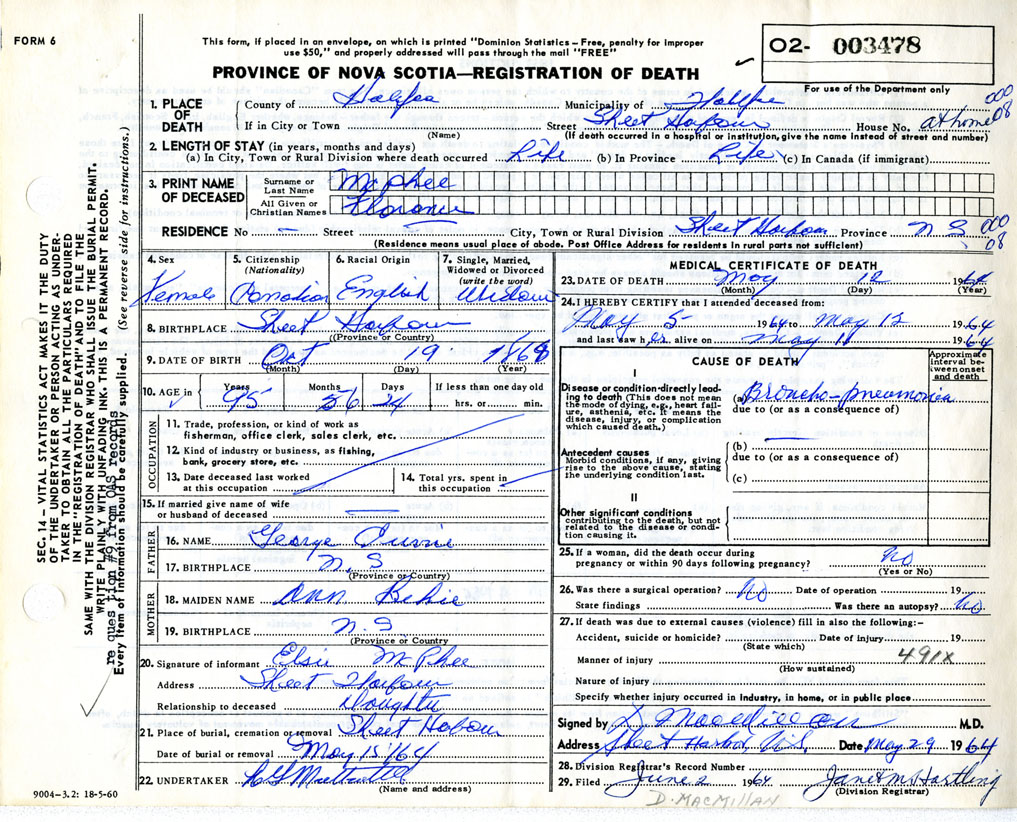 FORM 6
This form, if placed in an envelope, on which is printed "Dominion Statistics – Free, penalty for improper
use $50," and properly addressed will pass through the mail "FREE"
O2- 003478
For use of the Department only
PROVINCE OF NOVA SCOTIA—REGISTRATION OF DEATH
1. PLACE OF DEATH
County of Halifax Municipality of Halifax 000
If in City or Town (Name) Street Sheet Harbour House No. at home 08
(If death occurred in a hospital or institution, give the name instead of street and number)
2. LENGTH OF STAY (in years, months and days)
(a) In City, Town or Rural Division where death occurred Life (b) In Province Life (c) In Canada (if immigrant)
3. PRINT NAME OF DECEASED
Surname or Last Name McPhee
All Given or Christian Names Florance
RESIDENCE No – Street City, Town or Rural Division Sheet Harbour Province N S 000 08
(Residence means usual place of abode. Post Office Address for residents in rural parts not sufficient)
4. Sex Female
5. Citizenship (Nationality) Canadian
6. Racial Origin English
7. Single, Married, Widowed or Divorced (write the word) Widow
8. BIRTHPLACE Sheet Harbour
(Province or Country)
9. DATE OF BIRTH Oct 19 1868
(Month) (Day) (Year)
10. AGE in Years 95 Months 6 Days 24 If less than one day old hrs. or min.
OCCUPATION
11. Trade, profession, or kind of work as
fisherman, office clerk, sales clerk, etc.
12. Kind of industry or business, as fishing,
bank, grocery store, etc.
13. Date deceased last worked
at this occupation
14. Total yrs. spent in
this occupation
15. If married give name of wife
or husband of deceased
FATHER
16. NAME George
17. BIRTHPLACE N. S
(Province or Country)
MOTHER
18. MAIDEN NAME Ann
19. BIRTHPLACE N. S
(Province or Country
20. Signature of informant Elsie McPhee
Address Sheet Harbour
Relationship to deceased Daughter
21. Place of burial, cremation or removal Sheet Hobour
Date of burial or removal May 15/64
22. UNDERTAKER
(Name and address)
9004–3.2: 18-5-60
MEDICAL CERTIFICATE OF DEATH
23. DATE OF DEATH May 12 1964
(Month) (Day) (Year)
24. I HEREBY CERTIFY that I attended deceased from:
May 5 1964 to May 12 1964
and last saw her alive on May 11 1964
CAUSE OF DEATH
Approximate interval between onset and death
I
Disease or condition directly leading to death (This does not mean the mode of dying, e.g., heart failure, asthenia, etc. It means the disease, injury, or complication which caused death.)
(a) Broncho-pneumonia
due to (or as a consequence of)
Antecedent causes
Morbid conditions, if any, giving rise to the above cause, stating the underlying condition last.
(b)
due to (or as a consequence of)
(c)
II
Other significant conditions
contributing to the death, but not related to the disease or condition causing it.
25. If a woman, did the death occur during
pregnancy or within 90 days following pregnancy? No
(Yes or No)
26. Was there a surgical operation? No Date of operation 19
State findings Was there an autopsy? No
27. If death was due to external causes (violence) fill in also the following:–
Accident, suicide or homicide? Date of injury 19
(State which)
Manner of injury 491X
(How sustained)
Nature of injury
Specify whether injury occurred in industry, in home, or in public place
Signed by M.D.
Address Sheet Harbor, N.S. Date May 29 1964
28. Division Registrar's Record Number
29. Filed June 2 1964 Janet M Hartling
(Division Registrar)
D. MACMILLAN
SEC. 14 – VITAL STATISTICS ACT MAKES IT THE DUTY
OF THE UNDERTAKER OR PERSON ACTING AS UNDER-
TAKER TO OBTAIN ALL THE PARTICULARS REQUIRED
IN THE "REGISTRATION OF DEATH" AND TO FILE THE
SAME WITH THE DIVISION REGISTRAR WHO SHALL ISSUE THE BURIAL PERMIT.
WRITE PLAINLY WITH UNFADING INK. THIS IS A PERMANENT RECORD.
re question #9 from OAS records
Every item of information should be carefully supplied. (See reverse side for instructions.)